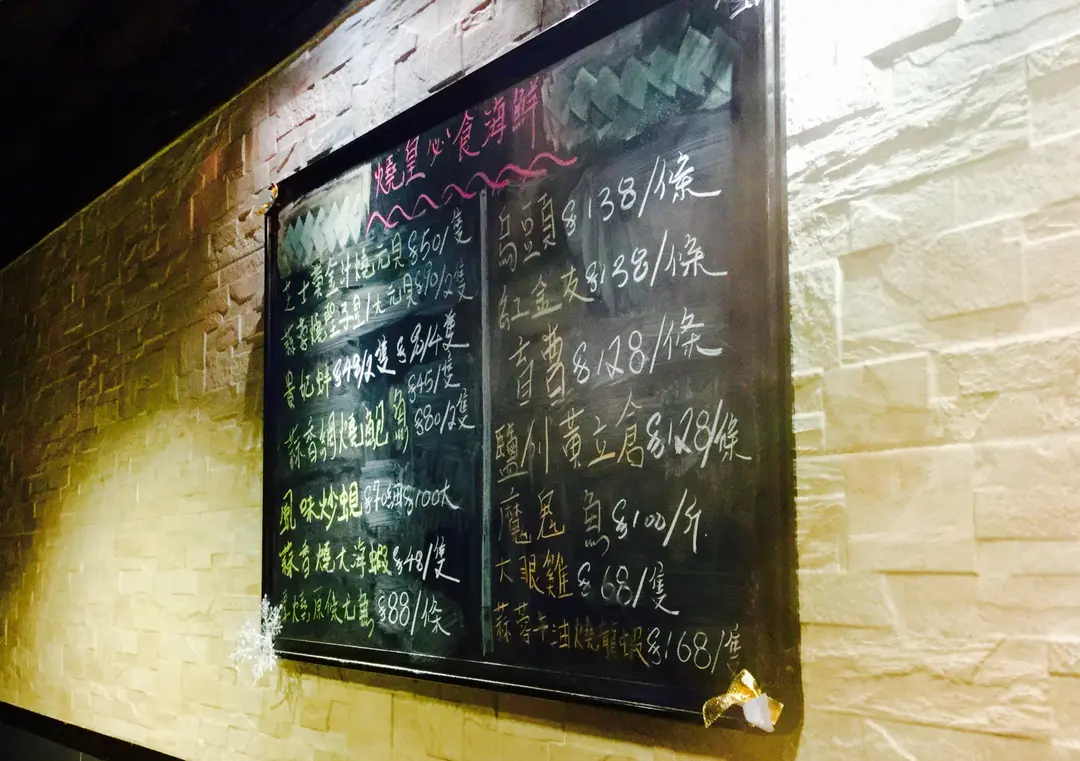 燒皇必食海鮮
芝士黃金火燒元貝$50/隻
蒜蓉燒聖子皇/大元貝$90/2隻
貴妃蚌$48/2隻 $90/4隻
蒜香焗燒鮑魚$45/隻
$80/2隻
風味炒蜆$70細$100大
蒜香燒大海蝦$48/隻
燒原條尤魚$88/條
烏頭$138/條
紅金友$138/條
青曹$128/條
鹽川黃立倉$128/條
魔鬼魚$100/斤
大眼雞$68/隻
蒜蓉牛油燒龍蝦$168/隻